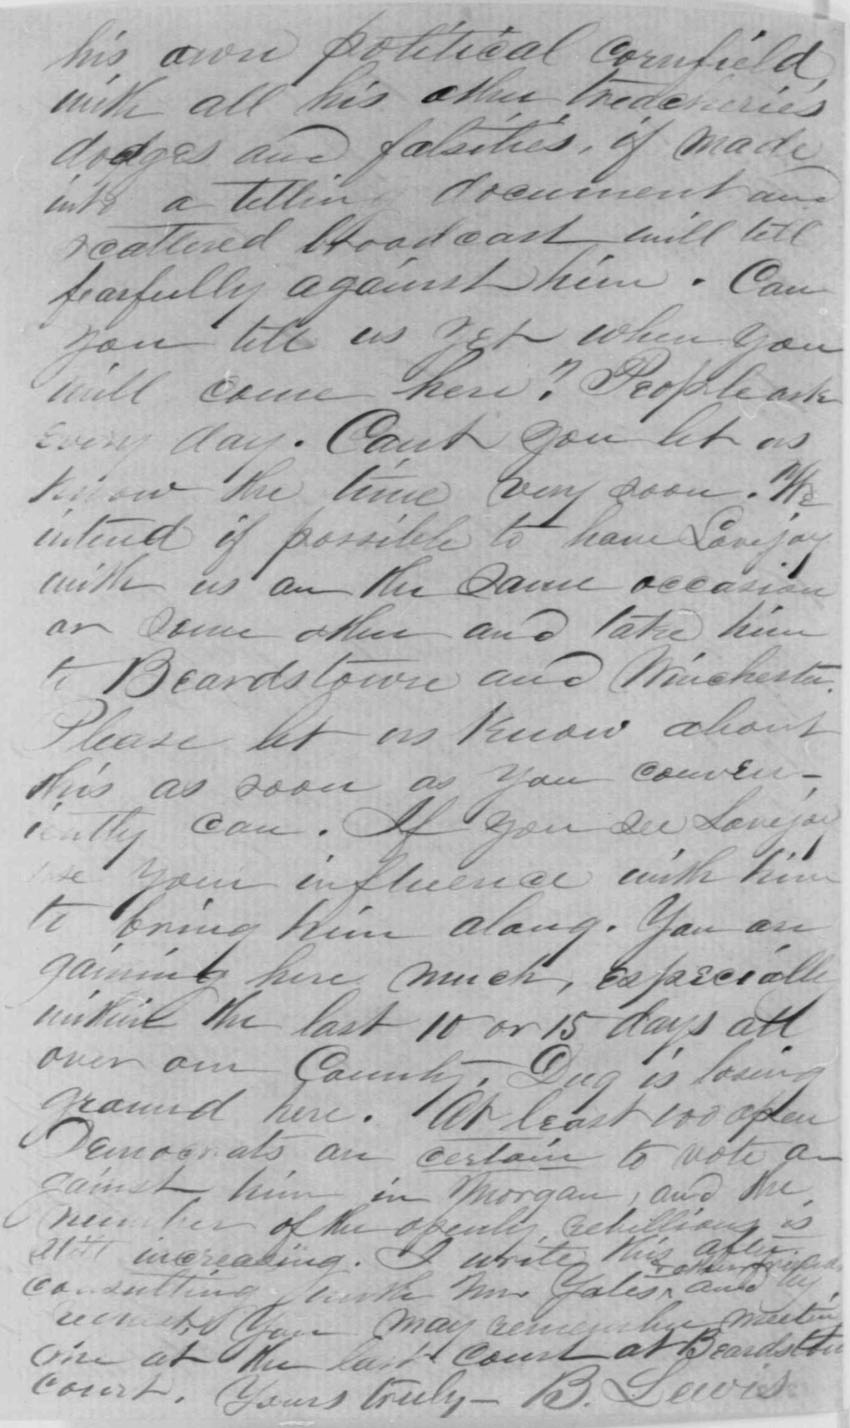 his own political cornfield,
with all his other treacheries
dodges and falsities, if made
into a telling document and
scattered broadcast will tell
fearfully against him. Can
you tell us yet when you
will come here? People ask
every day. Cant you let us
know the time very soon. We
intend if possible to have Lovejoy
with us on the same occasion
or some other and take him
to Beardstown and Winchester.
Please let us know about
this as soon as you conven-
iently can. If you see Lovejoy
use your influence with him
to bring him along. You are
gaining here much, especially
within the last 10 or 15 days all
over our County. Dug is losing
ground here. At least 100 open
Democrats are certain to vote a-
gainst him in Morgan, and the
number of the openly rebellious is
still increasing. I write this after
consulting with Mr Yates & other friends and by
request. You may remember meeting
me at the last court at Beardstown
court. Yours truly - B. Lewis